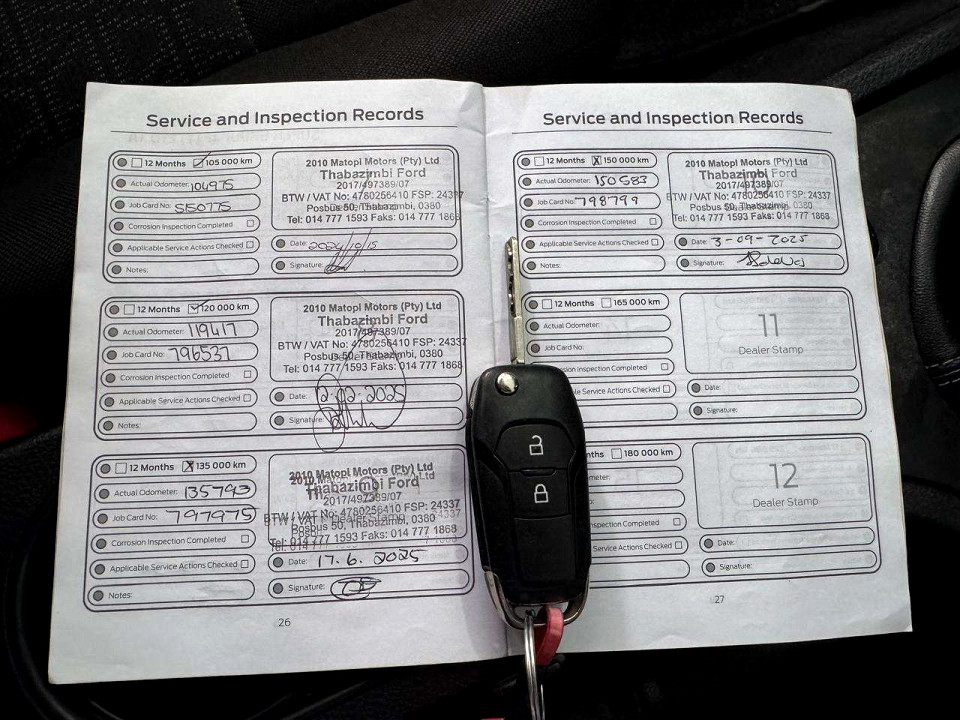 Service and Inspection Records
12 Months 105 000 km
Actual Odometer: 104975
Job Card No: 550775
Corrosion Inspection Completed
Applicable Service Actions Checked
Notes:
2010 Matopi Motors (Pty) Ltd
Thabazimbi Ford
2017/497389/07
BTW / VAT No: 4780256410 FSP: 24337
Posbus 50, Thabazimbi, 0380
Tel: 014 777 1593 Faks: 014 777 1868
Date: 2024/10/15
Signature:
12 Months 120 000 km
Actual Odometer: 119417
Job Card No: 796537
Corrosion Inspection Completed
Applicable Service Actions Checked
Notes:
2010 Matopi Motors (Pty) Ltd
Thabazimbi Ford
2017/497389/07
BTW / VAT No: 4780256410 FSP: 24337
Posbus 50, Thabazimbi, 0380
Tel: 014 777 1593 Faks: 014 777 1868
Date: 12-02-2025
Signature:
12 Months 135 000 km
Actual Odometer: 135793
Job Card No: 797975
Corrosion Inspection Completed
Applicable Service Actions Checked
Notes:
2010 Matopi Motors (Pty) Ltd
Thabazimbi Ford
2017/497389/07
BTW / VAT No: 4780256410 FSP: 24337
Posbus 50, Thabazimbi, 0380
Tel: 014 777 1593 Faks: 014 777 1868
Date: 17.6.2025
Signature:
26
Service and Inspection Records
12 Months 150 000 km
Actual Odometer: 150583
Job Card No: 798799
Corrosion Inspection Completed
Applicable Service Actions Checked
Notes:
2010 Matopi Motors (Pty) Ltd
Thabazimbi Ford
2017/497389/07
BTW / VAT No: 4780256410 FSP: 24337
Posbus 50, Thabazimbi, 0380
Tel: 014 777 1593 Faks: 014 777 1868
Date: 3-09-2025
Signature:
12 Months 165 000 km
Actual Odometer:
Job Card No:
Corrosion Inspection Completed
Service Actions Checked
11
Dealer Stamp
Date:
Signature:
180 000 km
Inspection Completed
Service Actions Checked
12
Dealer Stamp
Date:
Signature:
27